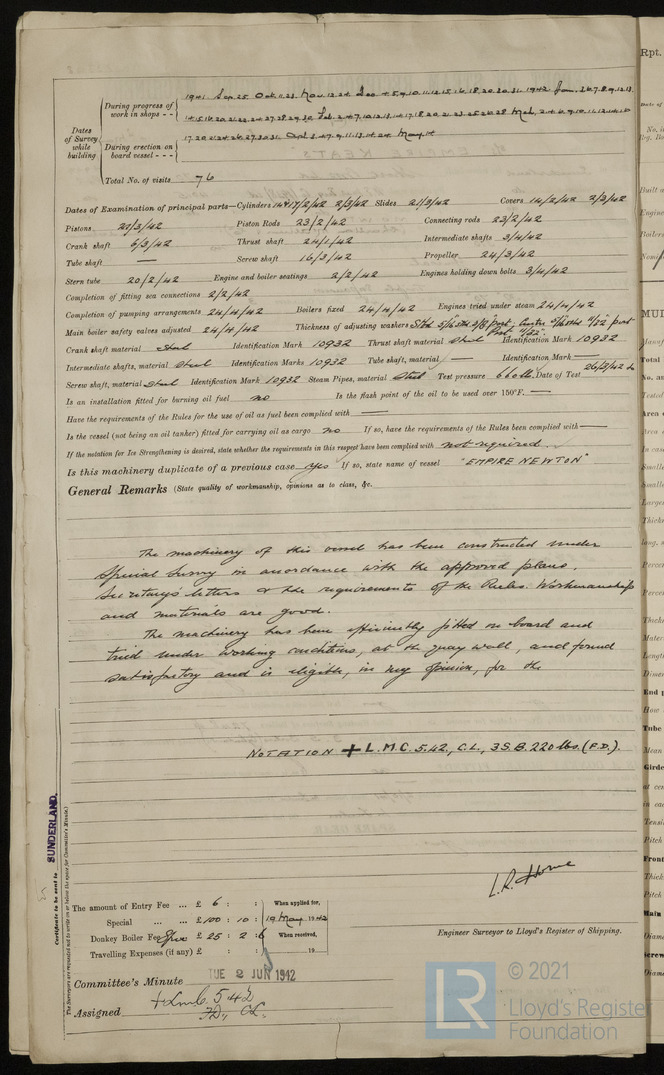 Dates of Survey while building
During progress of work in shops - -
1941. Sep. 25 Oct. Nov. 12.24 Dec 4.5.9.10.11.12.15.16.18.20.30.31. 1942 Jan. 2.6.7.8.9.12.13.
Feb. 2.4.7.10.12.13.14.17.18.20.21.23.25.26.28 Mch. 2.4.6.9.10.11.12.14.
During erection on board vessel - - -
17.20. 27.30.31. Opl 2.4.7.9.11.13. May. 14
Total No. of visits 76
Dates of Examination of principal parts—Cylinders 17/2/42 2/3/42 Slides 21/3/42 Covers 14/2/42 2/3/42
Pistons 23/3/42 Piston Rods 23/2/42 Connecting rods 23/2/42
Crank shaft 6/3/42 Thrust shaft 24/1/42 Intermediate shafts 3/4/42
Tube shaft — Screw shaft 16/3/42 Propeller 24/3/42
Stern tube 20/2/42 Engine and boiler seatings 2/2/42 Engines holding down bolts 3/4/42
Completion of fitting sea connections 2/2/42
Completion of pumping arrangements 24/4/42 Boilers fixed 24/4/42 Engines tried under steam 24/4/42
Main boiler safety valves adjusted 24/4/42 Thickness of adjusting washers
Crank shaft material Steel Identification Mark 10932 Thrust shaft material Steel Identification Mark 10932
Intermediate shafts, material Steel Identification Marks 10932 Tube shaft, material — Identification Mark —
Screw shaft, material Steel Identification Mark 10932 Steam Pipes, material Steel Test pressure 660 lb. Date of Test 26/3/42
Is an installation fitted for burning oil fuel no Is the flash point of the oil to be used over 150°F. —
Have the requirements of the Rules for the use of oil as fuel been complied with —
Is the vessel (not being an oil tanker) fitted for carrying oil as cargo no If so, have the requirements of the Rules been complied with —
If the notation for Ice Strengthening is desired, state whether the requirements in this respect have been complied with not required.
Is this machinery duplicate of a previous case yes If so, state name of vessel "EMPIRE NEWTON"
General Remarks (State quality of workmanship, opinions as to class, &c.
The machinery of this vessel has been constructed under
Special Survey in accordance with the approved plans.
Secretary's letters & the requirements of the Rules. Workmanship
and materials are good.
The machinery has been efficiently fitted on board and
tried under working conditions, at the quay wall, and found
satisfactory and is eligible, in my opinion, for the
NOTATION + L.M.C. 5.42., C.L., 3 S.B. 220 lbs. (F.D.).
L.R. Horne
Engineer Surveyor to Lloyd's Register of Shipping.
Certificate to be sent to SUNDERLAND.
(The Surveyors are requested not to write on or below the space for Committee's Minute.)
The amount of Entry Fee ... £ 6 : : When applied for,
Special ... ... £ 100 : 10 : 19 May 1942
Donkey Boiler Fee £ 25 : 2 : 6 When received,
Travelling Expenses (if any) £ : : 19
Committee's Minute TUE 2 JUN 1942
Assigned + Lmc. 5.42
FD, CL.
LR
© 2021
Lloyd's Register
Foundation
Rpt.